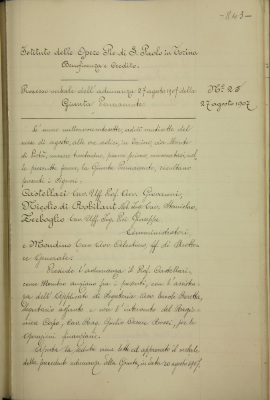 -843-
Istituto delle Opere Pie di S. Paolo in Torino
Beneficenza e Credito.
Processo verbale dell'adunanza 27 agosto 1907 della
Giunta Permanente.
N° 25
27 agosto 1907
L'anno millenovecentosette, addì ventisette del
mese di agosto, alle ore sedici, in Torino, via Monte
di Pietà, numero trentadue, piano primo,
presenti i Signori:
Castellari Cav. Uff. Prof. Avv. Giovanni,
Nicolis di Robilant Cav. Stanislao,
Zerboglio Cav. Uff. Ing. Giuseppe
Amministratori,
e Mondino Cav. Celestino, ff. di Dirett-
ore Generale.
Presiede l'adunanza il Prof. Castellari,
come Membro anziano fra i presenti, con l'assisten-
za dell'Applicato di Segreteria
Segretario aggiunto e con l'intervento del Ragio-
niere Capo, Cav. Giulio per le
Operazioni finanziarie.
Aperta la seduta viene letto ed approvato il verbale
della precedente adunanza della Giunta, in data 20 agosto 1907,